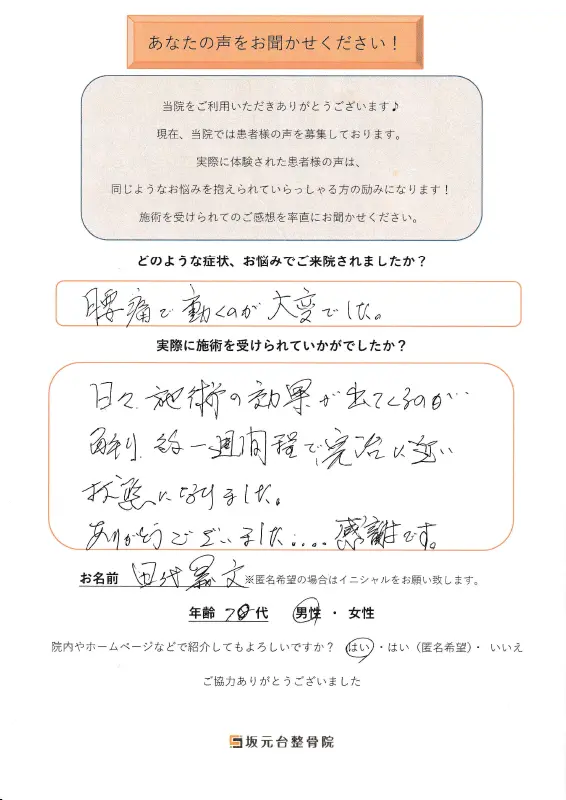 あなたの声をお聞かせください！
当院をご利用いただきありがとうございます♪
現在、当院では患者様の声を募集しております。
実際に体験された患者様の声は、
同じようなお悩みを抱えられていらっしゃる方の励みになります！
施術を受けられてのご感想を率直にお聞かせください。
どのような症状、お悩みでご来院されましたか？
腰痛で動くのが大変でした。
実際に施術を受けられていかがでしたか？
日々、施術の効果が出てくるのが…
解り、約一週間程で完治に近い
状態になりました。
ありがとうございました....感謝です。
お名前 田代 文 ※匿名希望の場合はイニシャルをお願い致します。
年齢 70代 男性 ・ 女性
院内やホームページなどで紹介してもよろしいですか？ はい ・はい（匿名希望）・ いいえ
ご協力ありがとうございました
坂元台整骨院